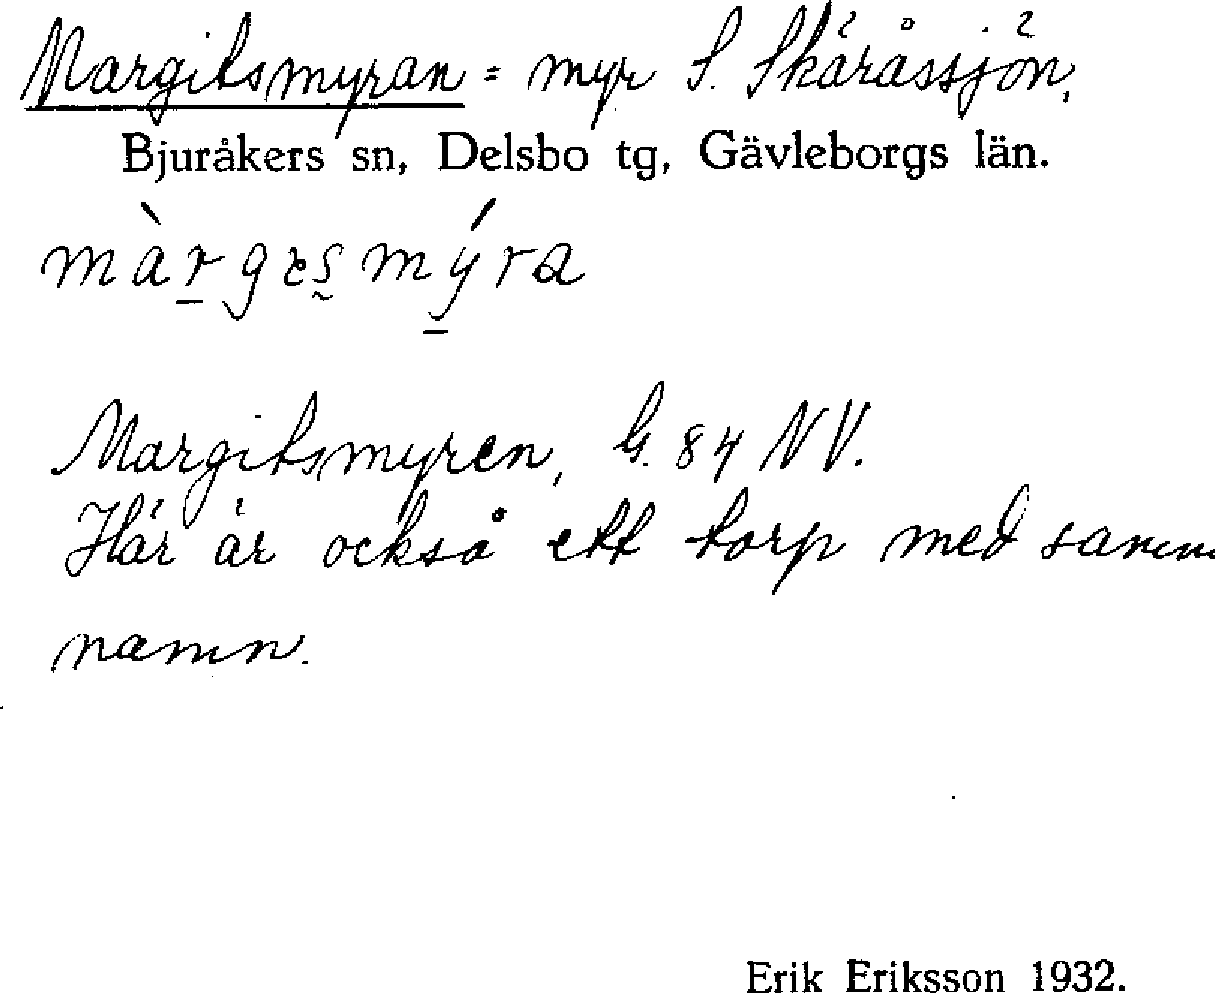 Margitsmyran = myr S. Skäråssjön,
Bjuråkers sn, Delsbo tg, Gävleborgs län.
Margitsmyren, G. 84 NV.
Här är också ett torp med samma
namn.
Erik Eriksson 1932.